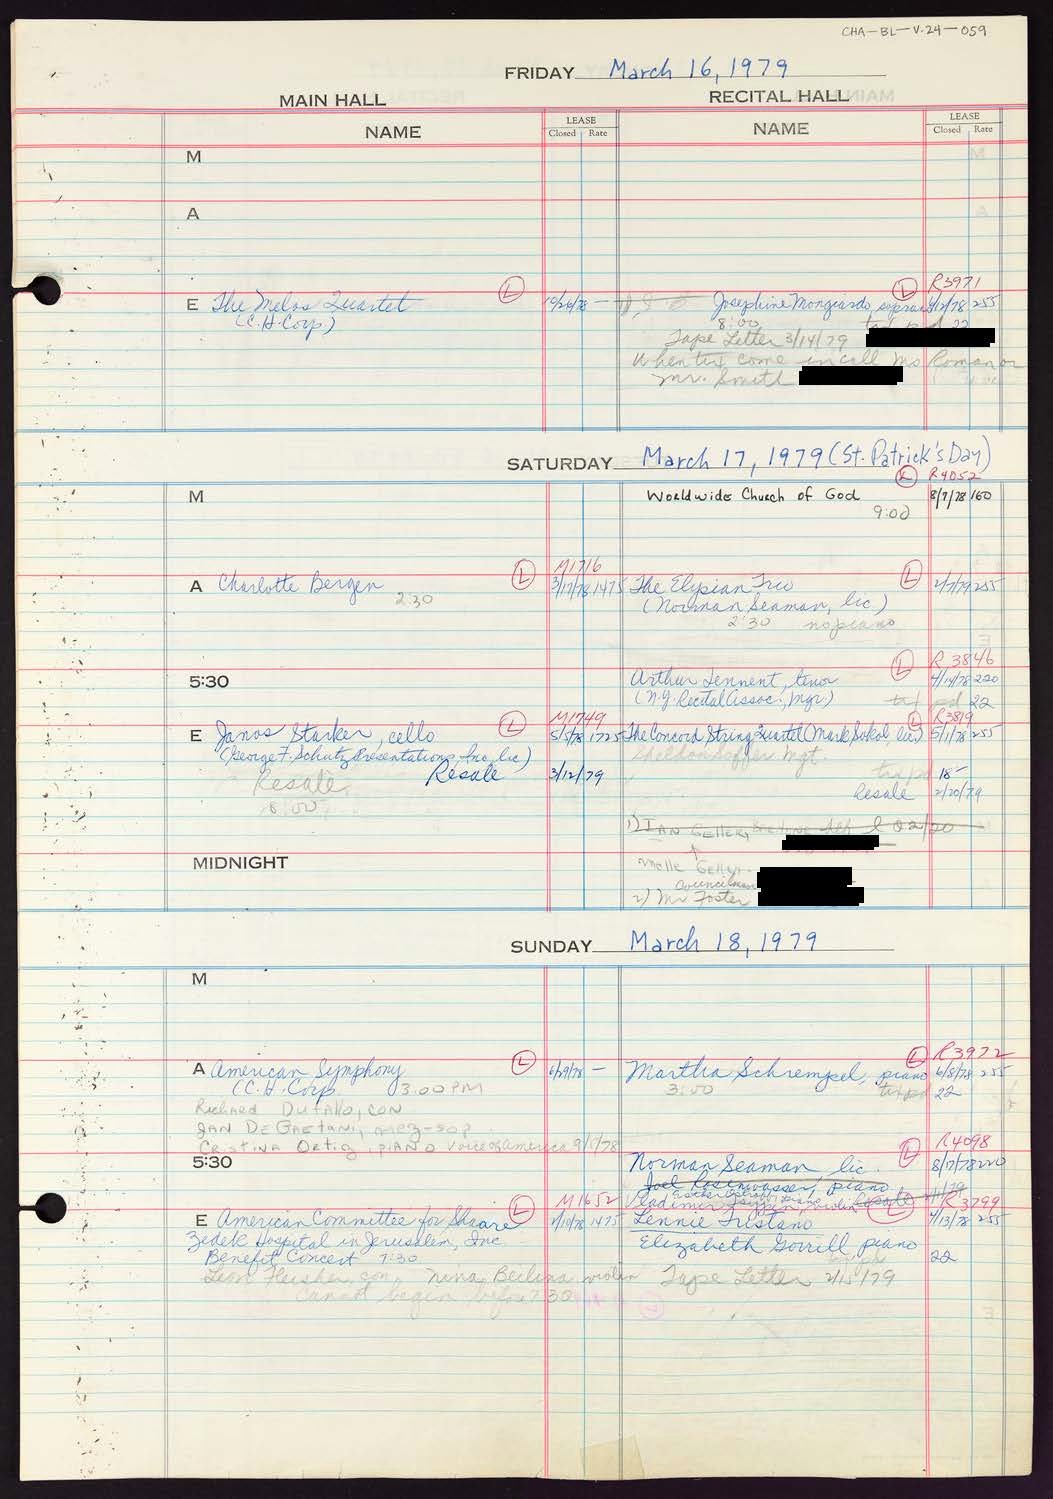 CHA-BL-V.24-059
FRIDAY March 16, 1979
MAIN HALL RECITAL HALL
NAME LEASE Closed Rate NAME LEASE Closed Rate
M
A
E The Melos Quartet (L) 10/26/78 —
(C.H. Corp)
(L) R3971
Josephine Mongiardo, soprano 4/12/78 255
8:00 tax pd 22
Tape Letter 3/14/79
When tix come in call Ms Roman or
Mr. Smith
SATURDAY March 17, 1979 (St. Patrick's Day)
(L) R4052
M Worldwide Church of God 8/7/78 160
9:00
A Charlotte Bergen (L) M1716 3/17/78 1475
2:30
The Elysian Trio (L) 2/7/79 255
(Norman Seaman, lic.)
2:30 no piano
5:30
(L) R3846
Arthur Tennent, tenor 4/14/78 220
(N.Y. Recital Assoc., Mgr) tax pd 22
E Janos Starker, cello (L) M1749 5/5/78 1725
(George F. Schutz Presentations, Inc, lic)
Resale Resale 3/12/79
8:00
(L) R3819
The Concord String Quartet (Mark Sokol, lic.) 5/1/78 255
Sheldon Soffer Mgt.
tax pd 18-
Resale 2/20/79
1) IAN Geller,
Geller
Councilman
2) Mr Foster
MIDNIGHT
SUNDAY March 18, 1979
M
A American Symphony (L) 6/29/78 —
(C.H. Corp 3:00 PM
Richard Dufallo, con
JAN DEGaetani, mez-sop.
Cristina Ortiz, piano Voice of America 9/1/78
(L) R3972
Martha Schrempel, piano 6/8/78 255
3:00 tax pd 22
5:30
(L) R4098
Norman Seaman lic. 8/17/78 220
Joel Rosenwasser, piano
Vladimir violin Resale
E American Committee for Shaare (L) M1652 1475
Zedek Hospital in Jerusalem, Inc.
Benefit Concert 7:30
Leon Fleisher, con, Nina Beilina, violin
Cannot begin before 7:30
(L) R3799
Lennie Tristano 4/13/78 255
Elizabeth Gorrill piano
tax pd 22
Tape Letter 2/15/79